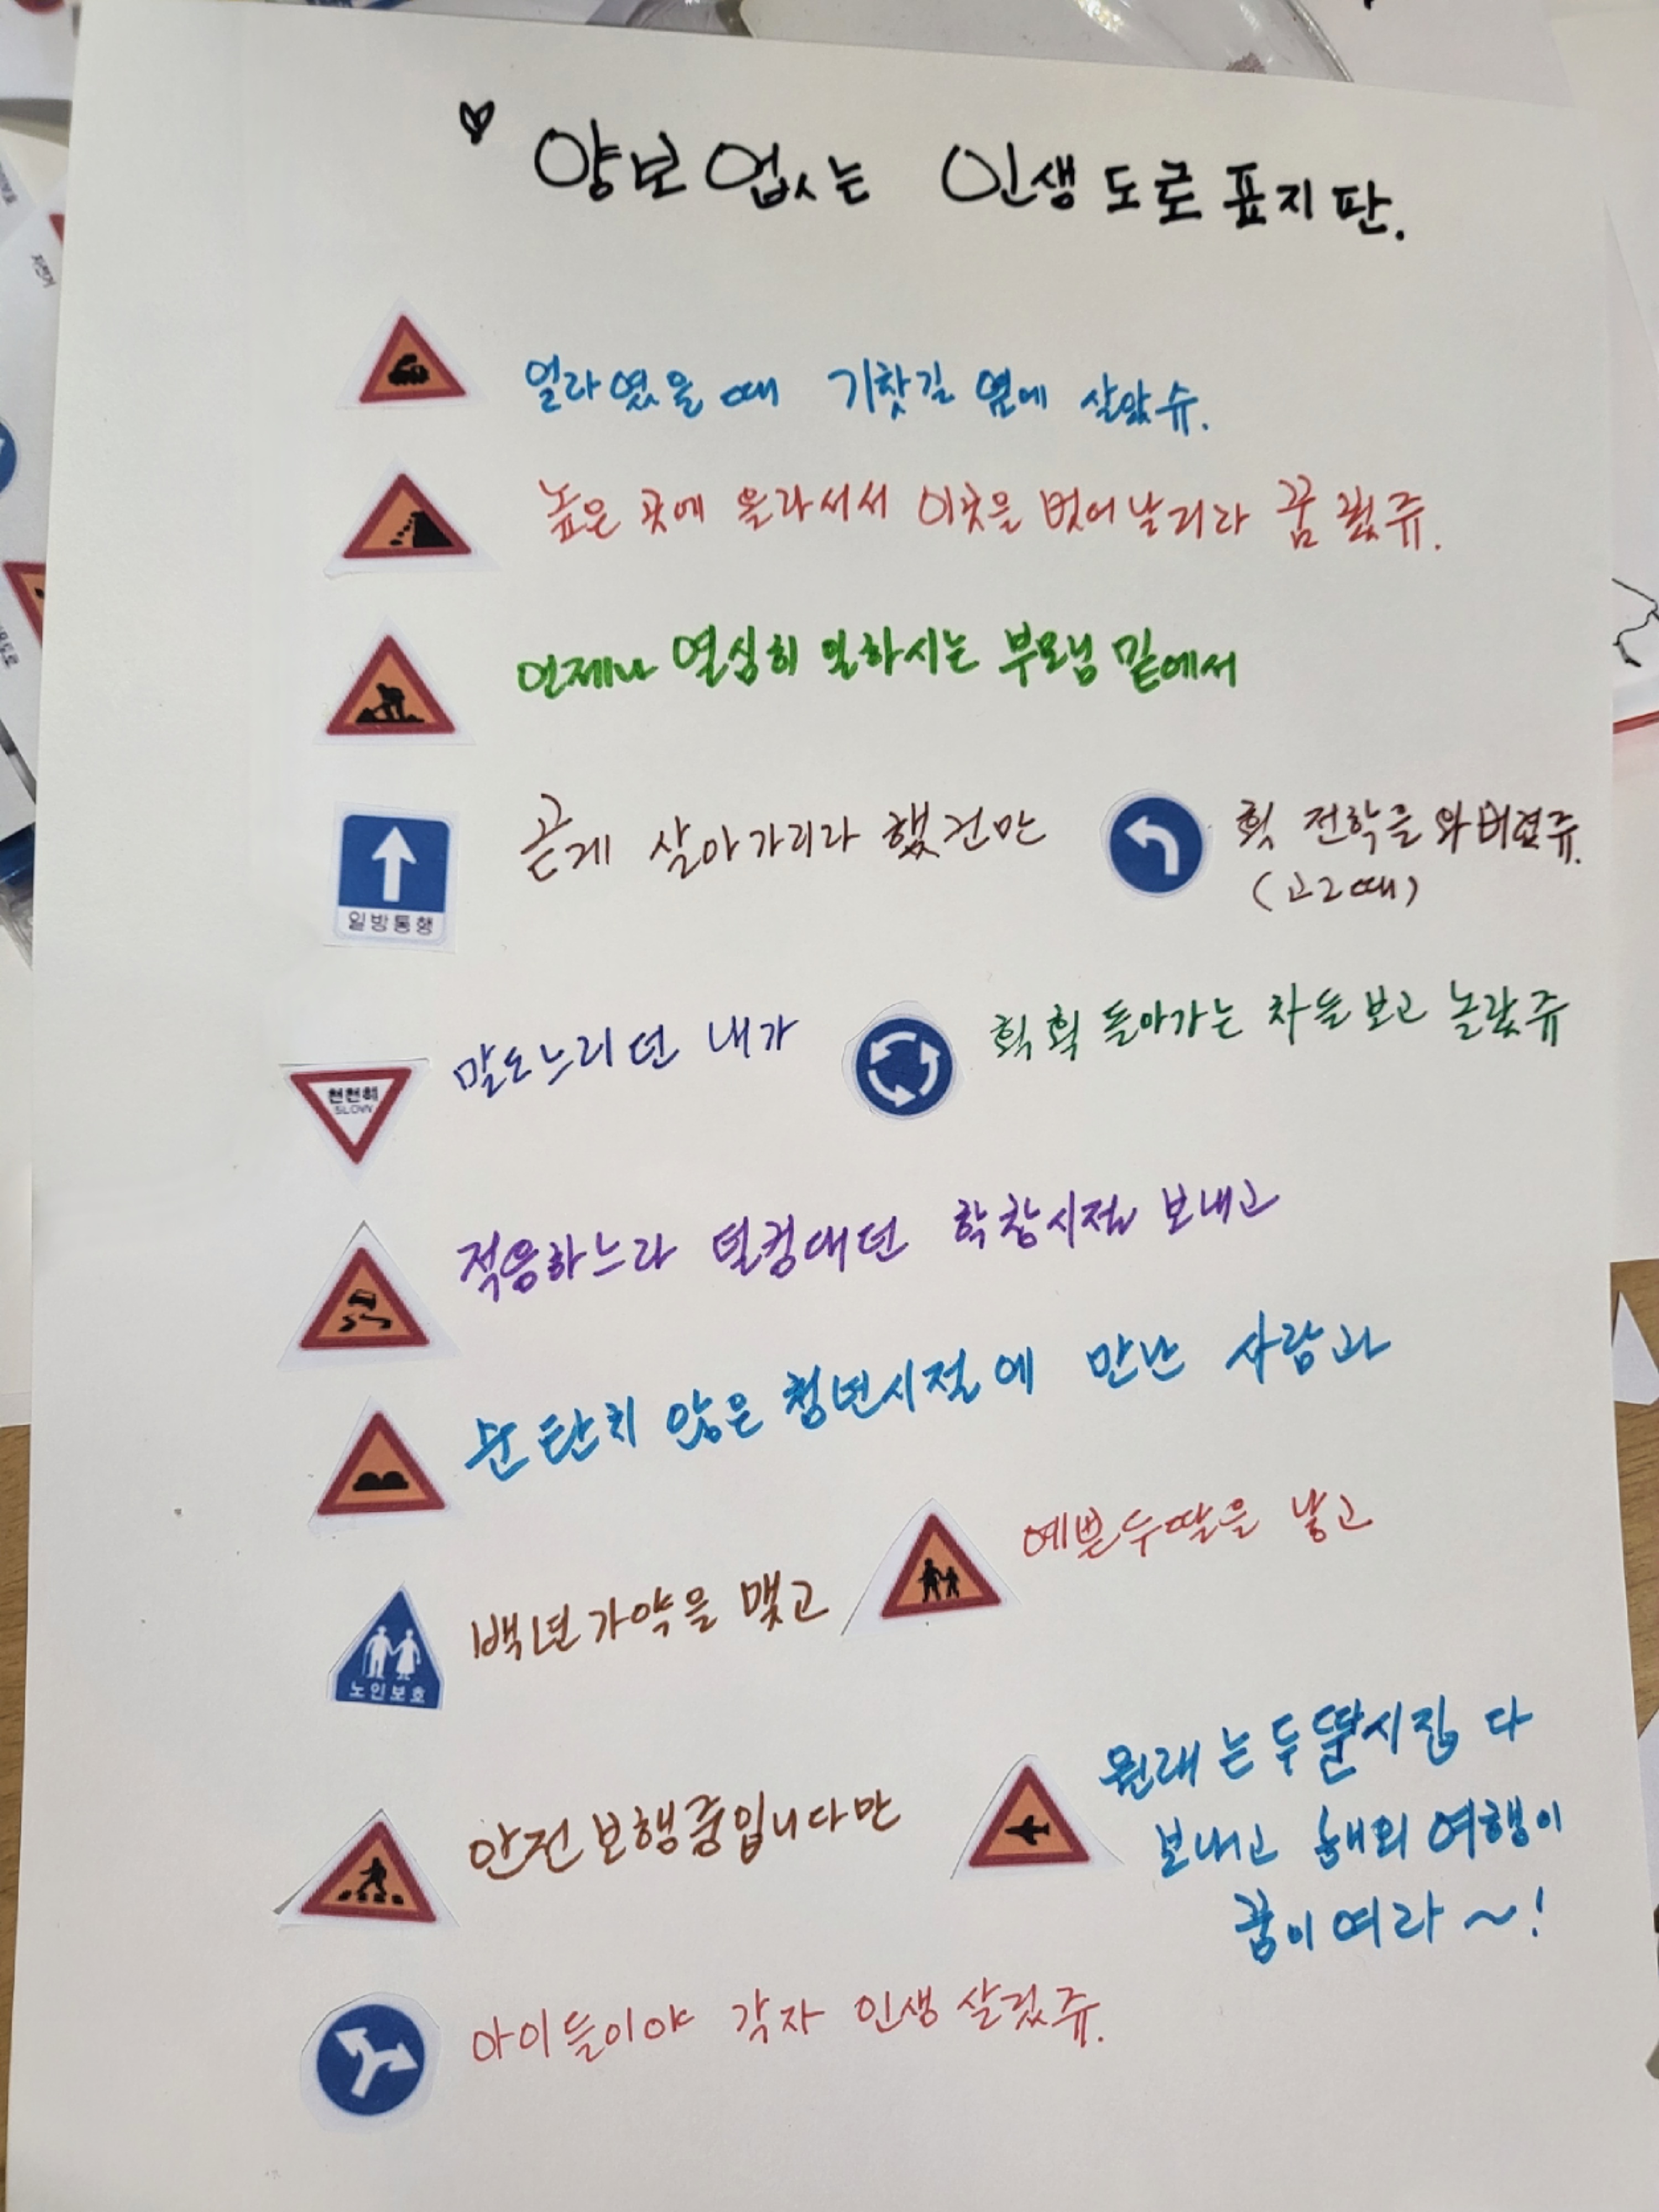 ♡ 양보 없는 인생 도로 표지판.
얼라였을 때 기찻길 옆에 살았슈.
높은 곳에 올라서서 이곳을 벗어날리라 꿈 꿨쥬.
언제나 열심히 일하시는 부모님 밑에서
곧게 살아가리라 했건만 휙 전학을 와버렸쥬.
(고2때)
일방통행
말도느리던 내가 휙휙 돌아가는 차들보고 놀랐쥬
천천히
SLOW
적응하느라 덜컹대던 학창시절 보내고
순탄치 않은 청년시절에 만난 사람과
백년가약을 맺고 예쁜두딸을 낳고
노인보호
안전보행중입니다만 원래는 두딸시집 다
보내고 해외여행이
꿈이여라~!
아이들이야 각자 인생 살겠쥬.